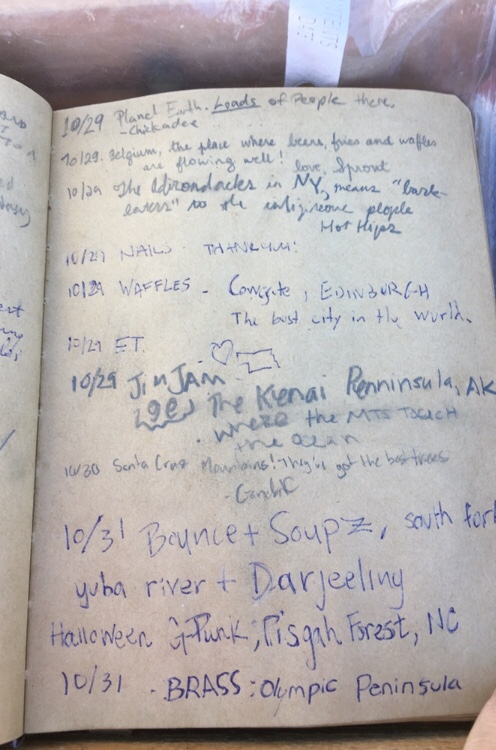 10/29 Planet Earth. Loads of People there.
- Chickadee
10/29. Belgium, the place where beers, fries and waffles
are flowing well! love, Sprout
10/29 The Adirondacks in NY, means "bark-
eaters" to the indigenous people
Hot Hips
10/29 NAILS - THANKYUM!
10/29 WAFFLES - Cowgate, EDINBURGH
The best city in the world.
10/29 ET.
10/29 JimJAM
The Kienai Penninsula, AK
where the MTS TOUCH
the ocean
10/30 Santa Cruz Mountains! They've got the best trees
10/31 Bounce + Soupz, south fork
yuba river + Darjeeling
Halloween G-Punk, Pisgah Forest, NC
10/31 - BRASS: Olympic Peninsula